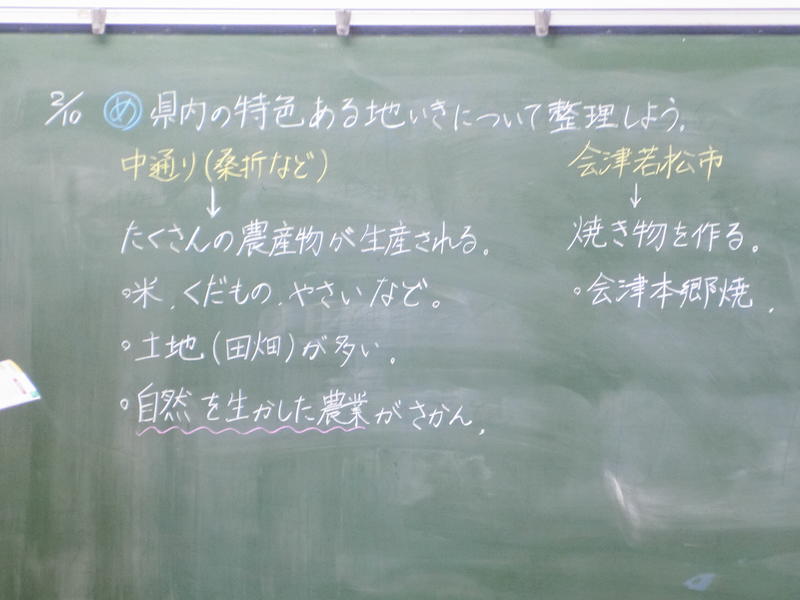 2/10 め 県内の特色ある地いきについて整理しよう。
中通り(桑折など)
↓
たくさんの農産物が生産される。
○米、くだもの、やさいなど。
○土地(田畑)が多い。
○自然を生かした農業がさかん。
会津若松市
↓
焼き物を作る。
○会津本郷焼。